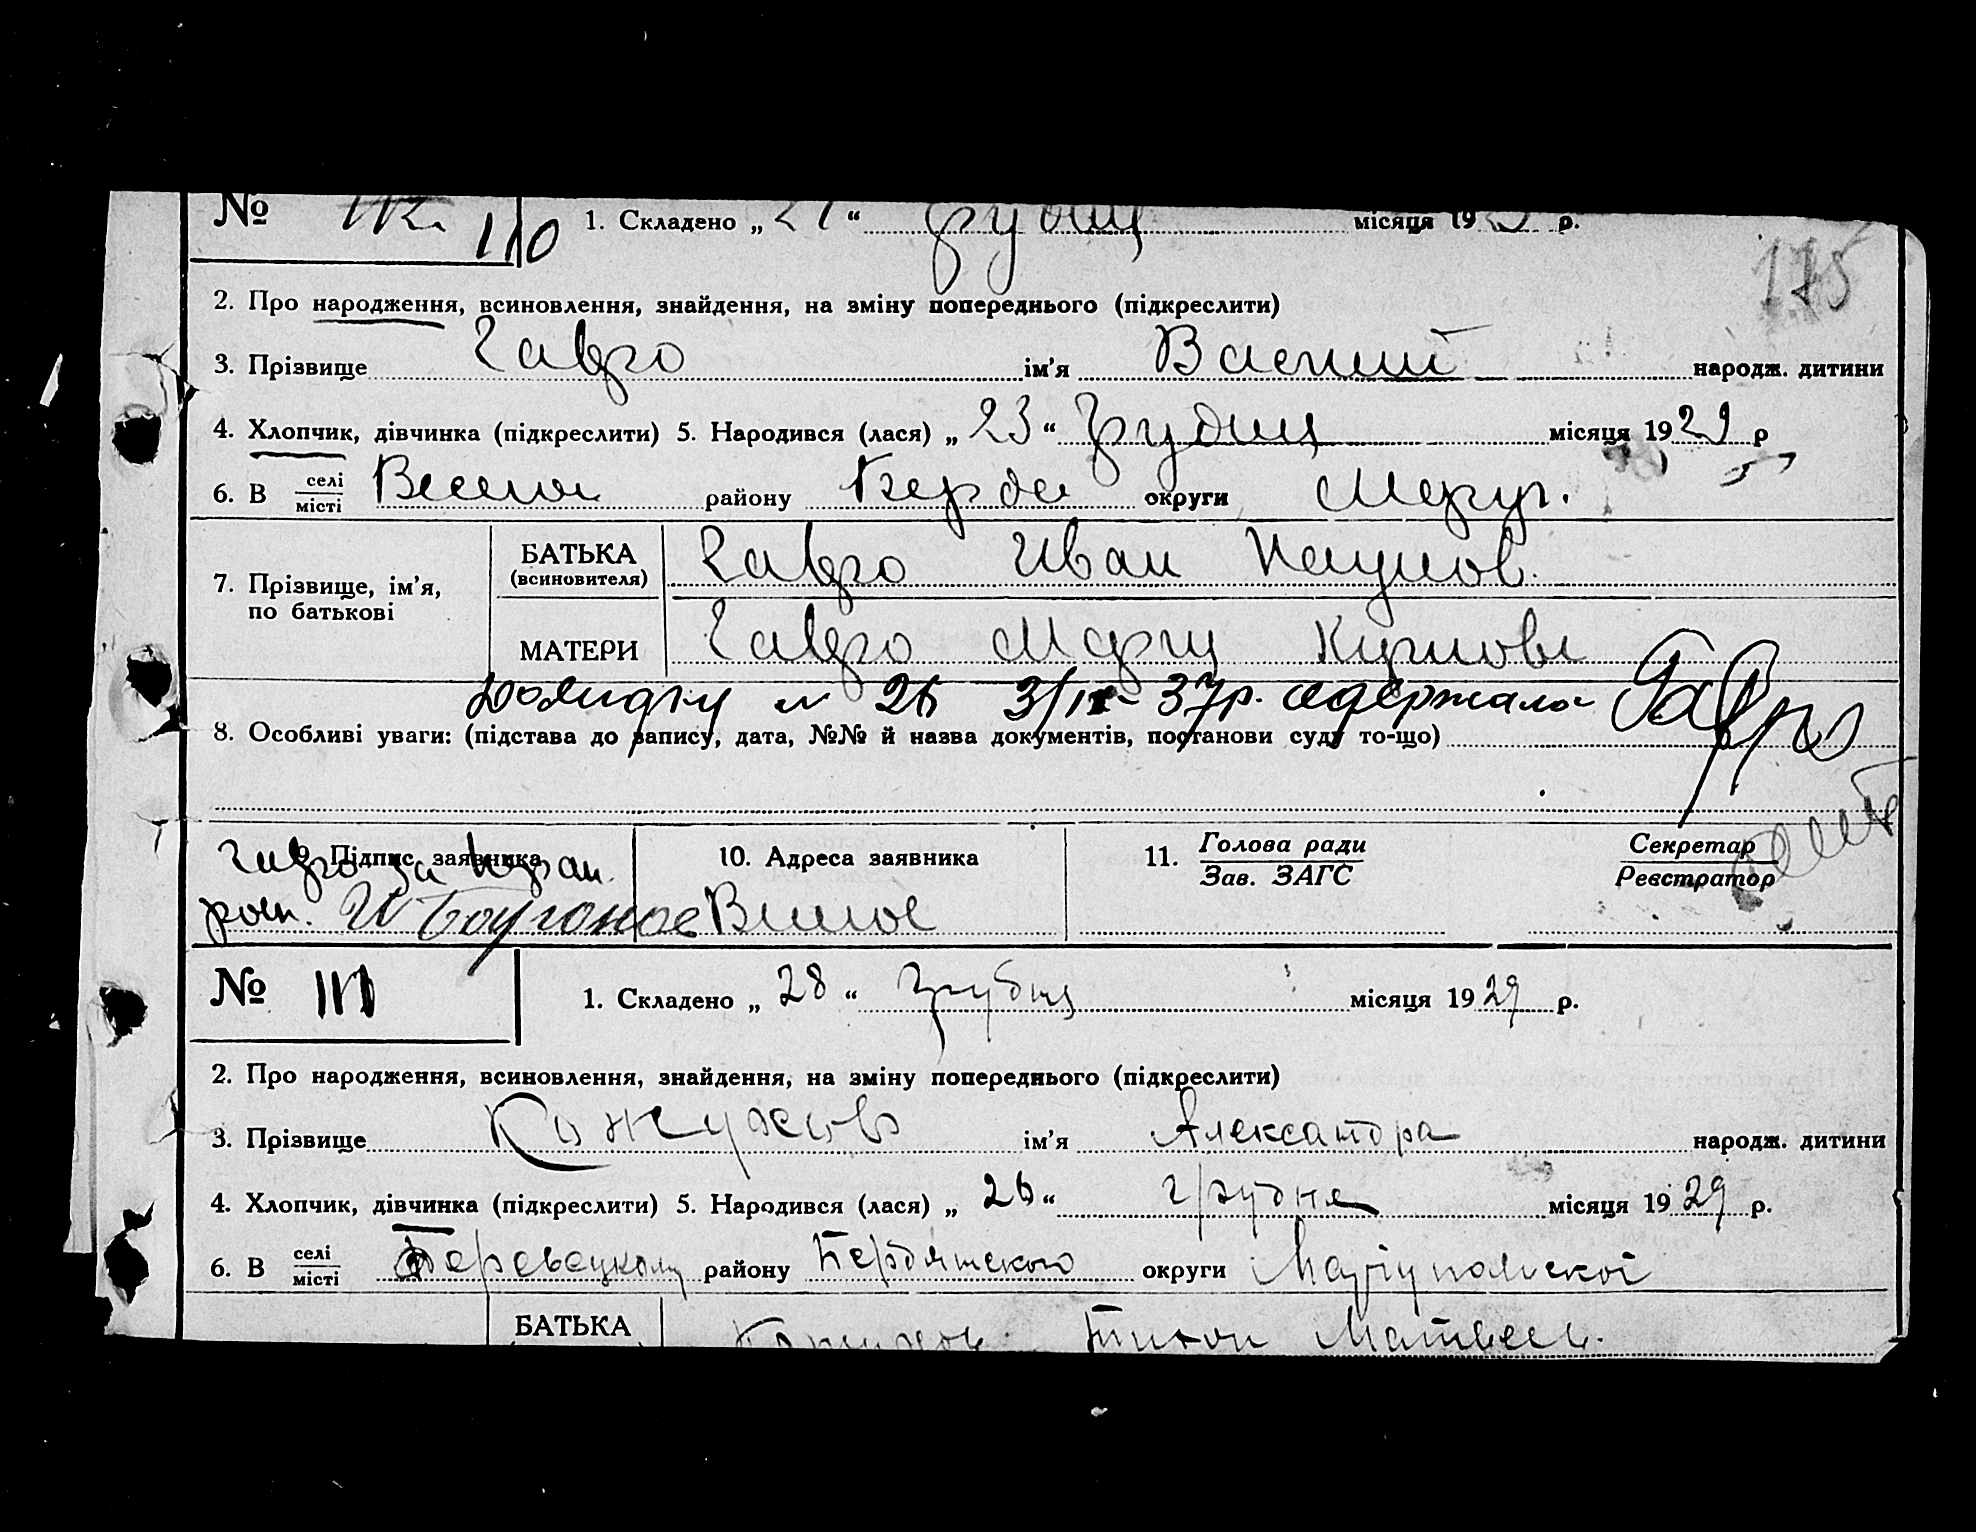 № 112. 110 1. Складено „ 27 “ грудня місяця 1929 р.
175
2. Про народження, всиновлення, знайдення, на зміну попереднього (підкреслити)
3. Прізвище Гавро ім'я Василий народж. дитини
4. Хлопчик, дівчинка (підкреслити) 5. Народився (лася) „ 23 “ грудня місяця 1929 р
6. В селі/місті района округи Мариуп.
7. Прізвище, ім'я, по батькові
БАТЬКА (всиновителя) Гавро Иван Наумов.
МАТЕРИ Гавро
Довидку № 26 37р. одержала Гавро
8. Особливі уваги: (підстава до запису, дата, №№ й назва документів, постанови суду то-що)
9. Підпис заявника 10. Адреса заявника 11. Голова ради/Зав. ЗАГС Секретар/Реєстратор
Гавро за неграм.
росп.
№ 111 1. Складено „ 28 “ грудня місяця 1929 р.
2. Про народження, всиновлення, знайдення, на зміну попереднього (підкреслити)
3. Прізвище Кожухов ім'я Александра народж. дитини
4. Хлопчик, дівчинка (підкреслити) 5. Народився (лася) „ 26 “ грудня місяця 1929 р.
6. В селі/місті району Бердянского округи Маріупольскоі
БАТЬКА Кожухов Тихон Матвеев.